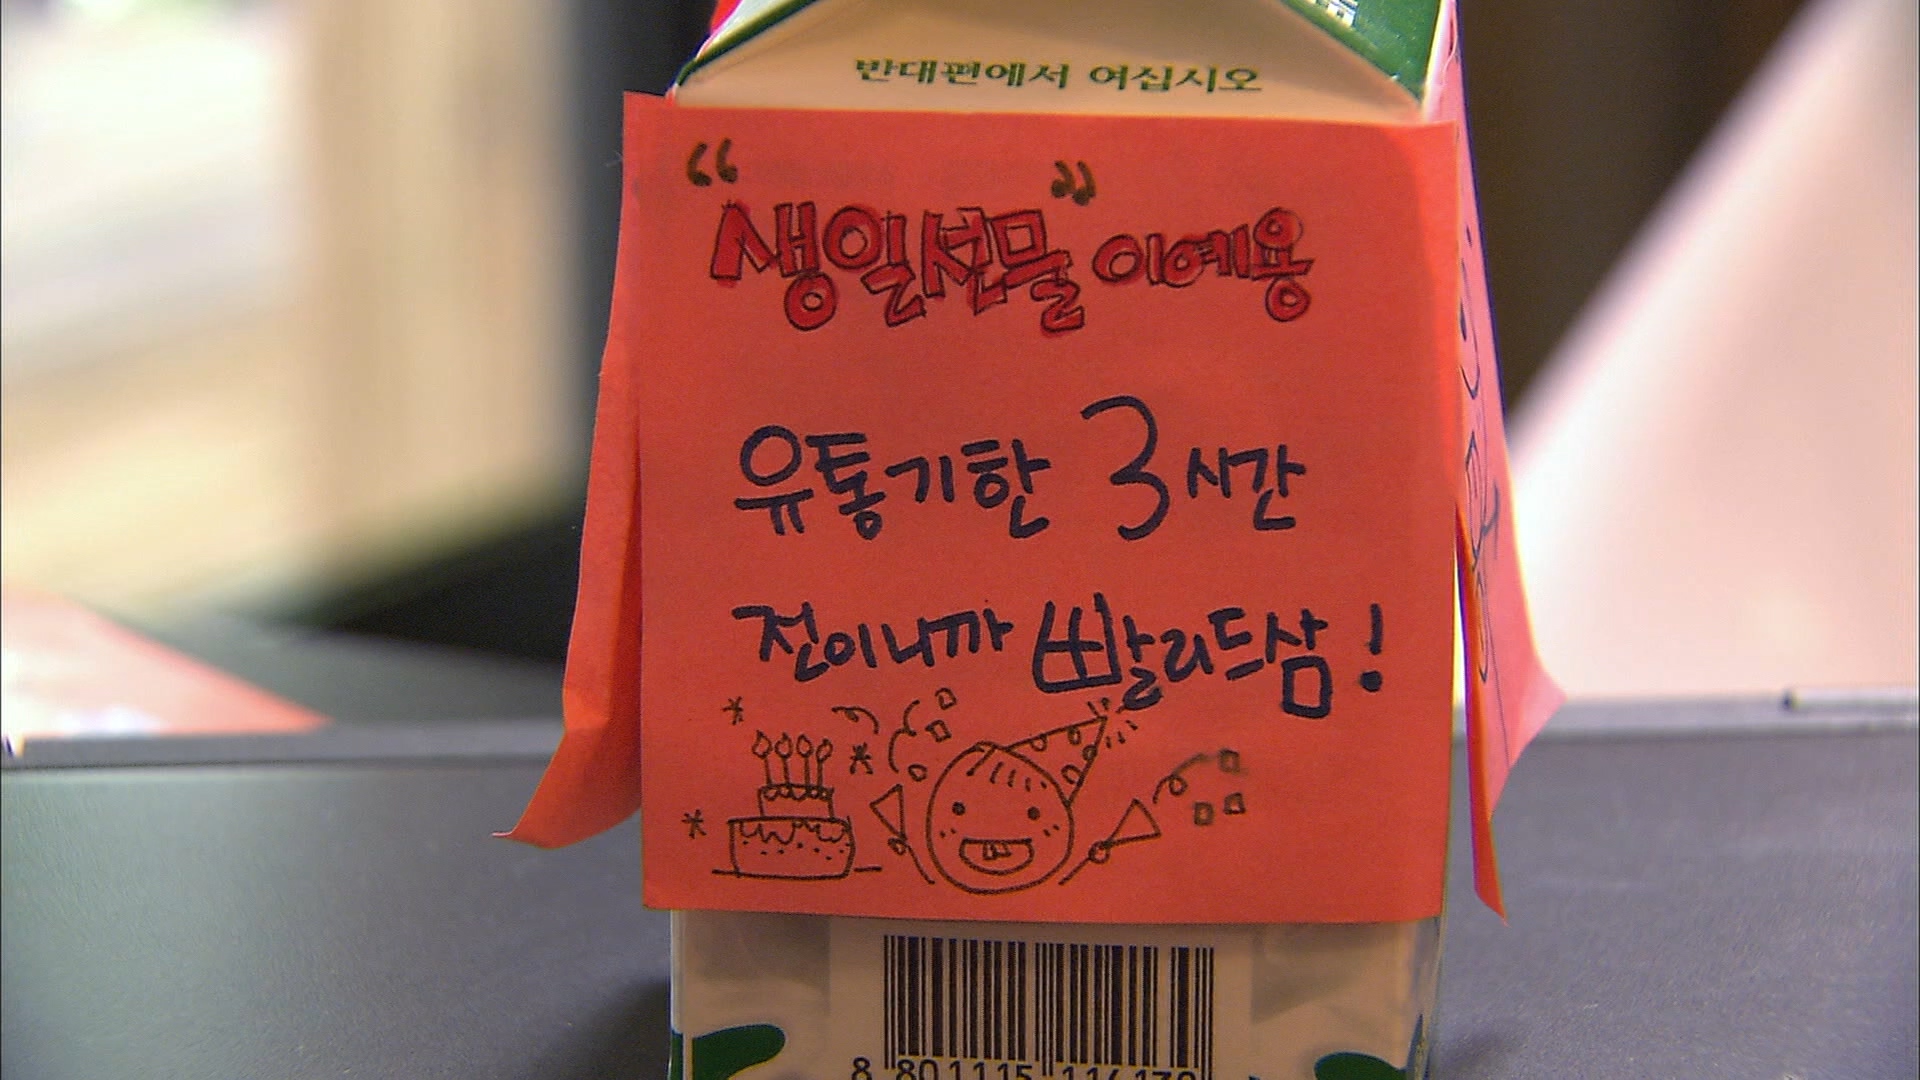 반대편에서 여십시오
“생일선물” 이예용
유통기한 3시간
전이니까 빨리드삼!
8 801115 114170